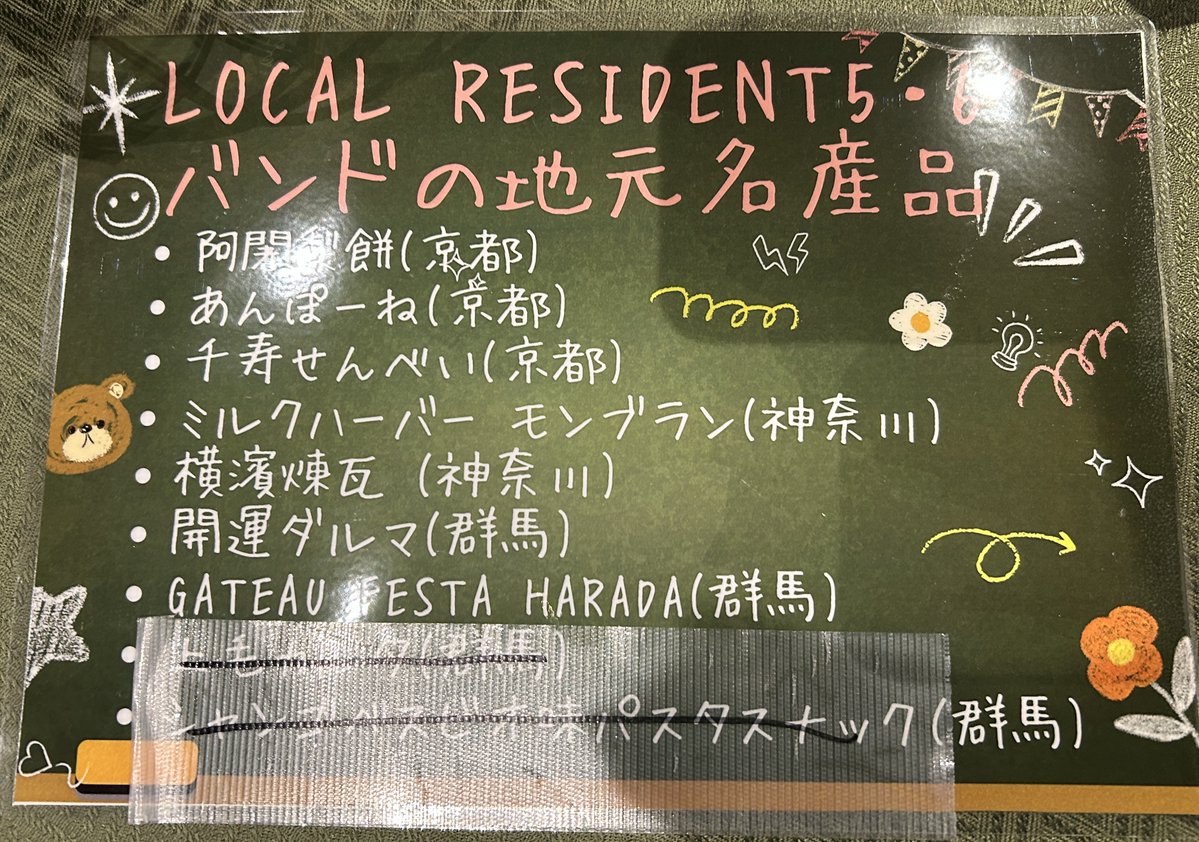 LOCAL RESIDENT5・6
バンドの地元名産品
• 阿闍梨餅(京都)
• あんぽーね(京都)
• 千寿せんべい(京都)
• ミルクハーバー モンブラン(神奈川)
• 横濱煉瓦 (神奈川)
• 開運ダルマ(群馬)
• GATEAU FESTA HARADA(群馬)
• (群馬)
• シャンゴベスビオ味パスタスナック(群馬)